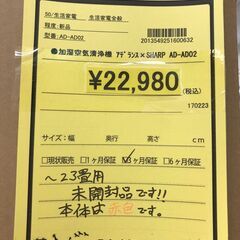 50/生活家電 生活家電全般
程度:新品
型番:AD-AD02
2013549251600632
●加湿空気清浄機 アデランス×SHARP AD-AD02
¥22,980(税込)
170223
サイズ:幅 奥行 高さ cm
□現状販売 □1ヶ月保証 ☑3ヶ月保証 □6ヶ月保証
～23畳用
未開封品です!!
本体は赤色です。